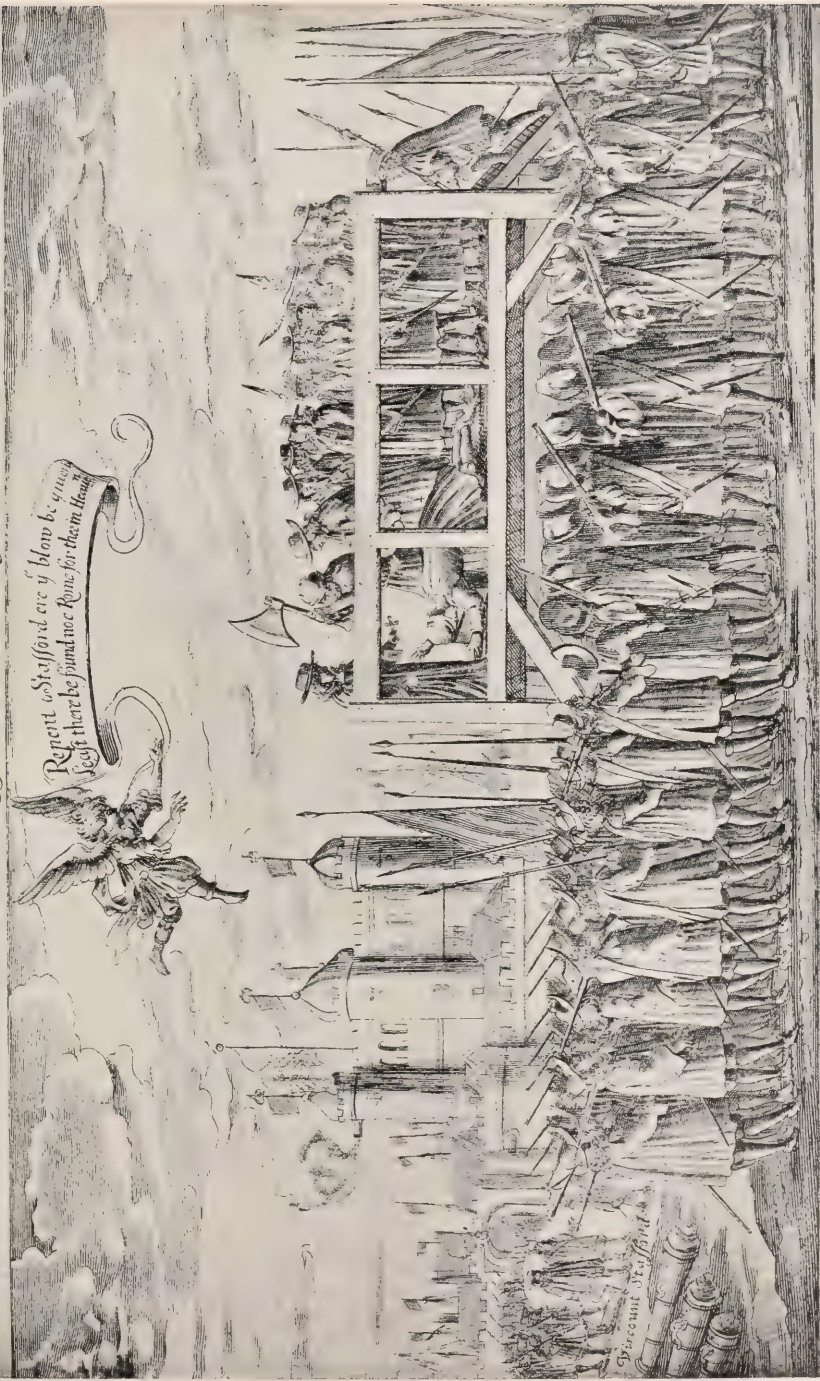 Repent ô Stafford ere yͤ blow be giuen
Least there be found noe Rome for thee in Heauen
Viscount Stafford